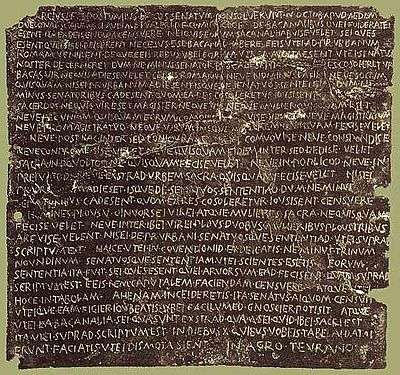 MARCIVS L F S POSTVMIVS L F COS SENATVM CONSOLVERVNT N OCTOB APVD AEDEM
DVELONAI SC ARF M CLAVDI M F L VALERI P F Q MINVCI C F DE BACANALIBVS QVEI FOIDERATEI
ESENT ITA EXDEICENDVM CENSVERE NEIQVIS EORVM BACANAL HABVISE VELET SEI QVES
ESENT QVEI SIBEI DEICERENT NECESVS ESE BACANAL HABERE EEIS VTEI AD PR VRBANVM
ROMAM VENIRENT DEQVE EEIS REBVS VBEI EORVM VERBA AVDITA ESENT VTEI SENATVS
NOSTER DECERNERET DVM NE MINVS SENATORBVS C ADESENT QVOM EA RES COSOLORETVR
BACAS VIR NEQVIS ADIESE VELET CEIVIS ROMANVS NEVE NOMINVS LATINI NEVE SOCIVM
QVISQVAM NISEI PR VRBANVM ADIESENT ISQVE DE SENATVOS SENTENTIAD DVM NE
MINVS SENATORIBVS C ADESENT QVOM EA RES COSOLERETVR IOVSISENT CENSVERE
SACERDOS NEQVIS VIR ESET MAGISTER NEQVE VIR NEQVE MVLIER QVISQVAM ESET
NEVE PECVNIAM QVISQVAM EORVM COMOINEM HABVISE VELET NEVE MAGISTRATVM
NEVE PRO MAGISTRATVD NEQVE VIRVM NEQVE MVLIEREM QVIQVAM FECISE VELET
NEVE POST HAC INTER SED CONIOVRASE NEVE COMVOVISE NEVE CONSPONDISE
NEVE CONPROMESISE VELET NEVE QVISQVAM FIDEM INTER SED DEDISE VELET
SACRA IN OQVOLTOD NE QVISQVAM FECISE VELET NEVE IN POPLICOD NEVE IN
PREIVATOD NEVE EXSTRAD VRBEM SACRA QVISQVAM FECISE VELET NISEI
PR VRBANVM ADIESET ISQVE DE SENATVOS SENTENTIAD DVM NE MINVS
SENATORIBVS C ADESENT QVOM EA RES COSOLERETVR IOVSISENT CENSVERE
HOMINES PLOVS V OINVORSEI VIREI ATQVE MVLIERES SACRA NE QVISQVAM
FECISE VELET NEVE INTER IBEI VIREI PLOVS DVOBVS MVLIERIBVS PLOVS TRIBVS
ARFVISE VELENT NISEI DE PR VRBANI SENATVOSQVE SENTENTIAD VTEI SVPRAD
SCRIPTVM EST HAICE VTEI IN COVENTIONID EXDEICATIS NE MINVS TRINVM
NOVNDINVM SENATVOSQVE SENTENTIAM VTEI SCIENTES ESETIS EORVM
SENTENTIA ITA FVIT SEI QVES ESENT QVEI ARVORSVM EAD FECISENT QVAM SVPRAD
SCRIPTVM EST EEIS REM CAPVTALEM FACIENDAM CENSVERE ATQVE VTEI
HOCE IN TABOLAM AHENAM INCEIDERETIS ITA SENATVS AIQVOM CENSVIT
VTEIQVE EAM FIGIER IOVBEATIS VBEI FACILVMED GNOSCIER POTISIT ATQVE
VTEI EA BACANALIA SEI QVA SVNT EXSTRAD QVAM SEI QVID IBEI SACRI EST
ITA VTEI SVPRAD SCRIPTVM EST IN DIEBVS X QVIBVS VOBEIS TABELAI DATAI
ERVNT FACIATIS VTEI DISMOTA SIENT IN AGRO TEVRANO